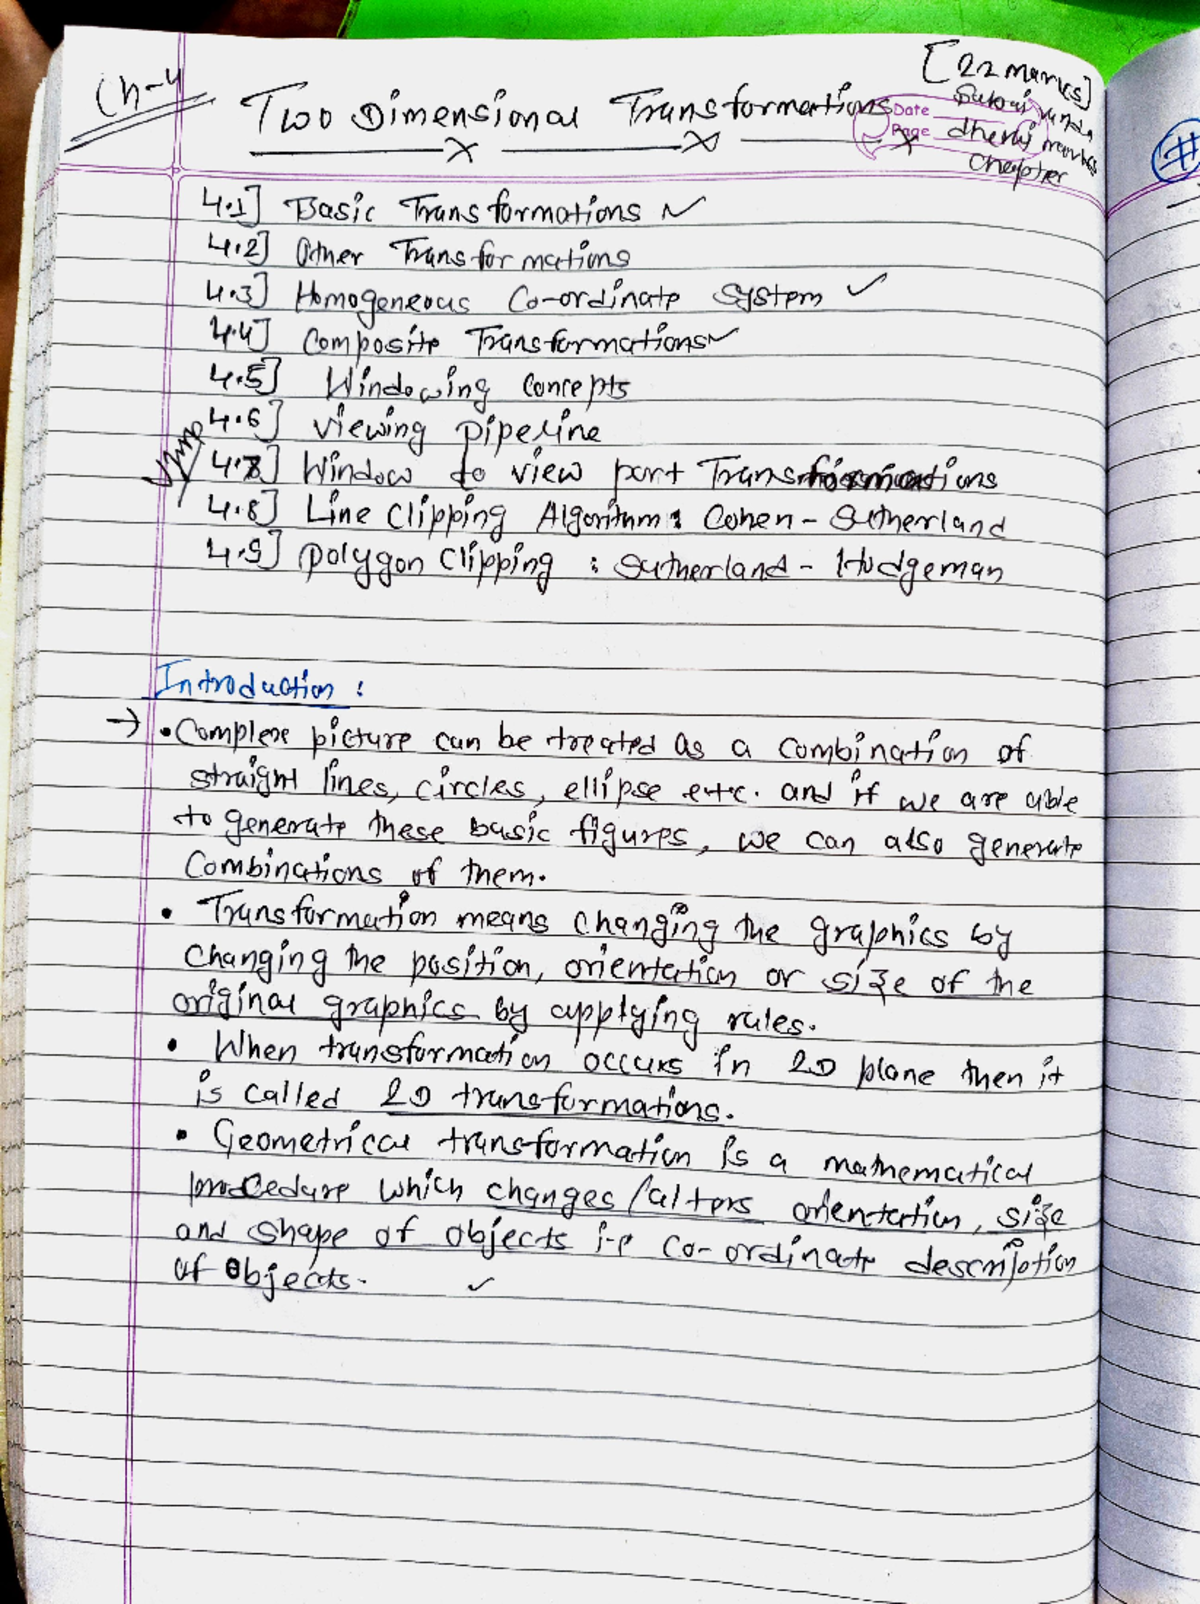 Ch-4
Two Dimensional Transformations
[22 marks]
Date
Page
Sabai vanda
dherai marks
chapter
#
4.1] Basic Transformations
4.2] Other Transformations
4.3] Homogeneous Co-ordinate System ✓
4.4] Composite Transformations ✓
4.5] Windowing concepts
4.6] Viewing pipeline
Vimp
4.7] Window to view port Transformations
4.8] Line Clipping Algorithm : Cohen - Sutherland
4.9] Polygon Clipping : Sutherland - Hodgeman
Introduction :
→ • Complex picture can be treated as a combination of
straight lines, circles, ellipse etc. and if we are able
to generate these basic figures, we can also generate
Combinations of them.
• Transformation means changing the graphics by
changing the position, orientation or size of the
original graphics by applying rules.
• When transformation occurs in 2D plane then it
is called 2D transformations.
• Geometrical transformation is a mathematical
procedure which changes/alters orientation, size
and shape of objects i.e co-ordinate description
of objects. ✓